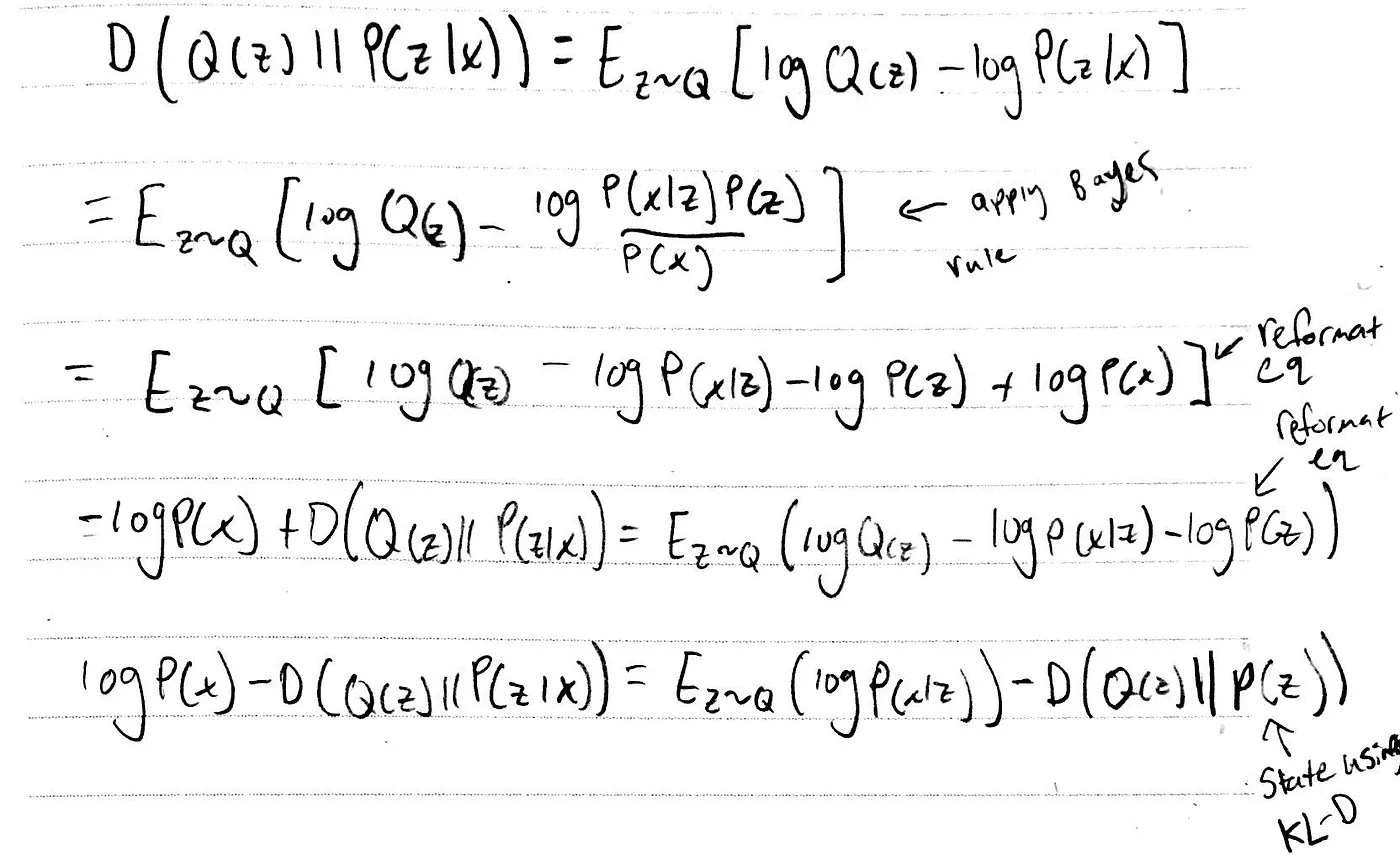 D(Q(z) || P(z|x)) = E_{z~Q} [log Q(z) - log P(z|x)]
= E_{z~Q} [log Q(z) - log \frac{P(x|z) P(z)}{P(x)}] ← apply Bayes
rule
= E_{z~Q} [log Q(z) - log P(x|z) - log P(z) + log P(x)] ↙ reformat
eq
reformat
eq
-log P(x) + D(Q(z) || P(z|x)) = E_{z~Q} (log Q(z) - log P(x|z) - log P(z))
log P(x) - D(Q(z) || P(z|x)) = E_{z~Q} (log P(x|z)) - D(Q(z) || P(z))
↑
State using
KL-D